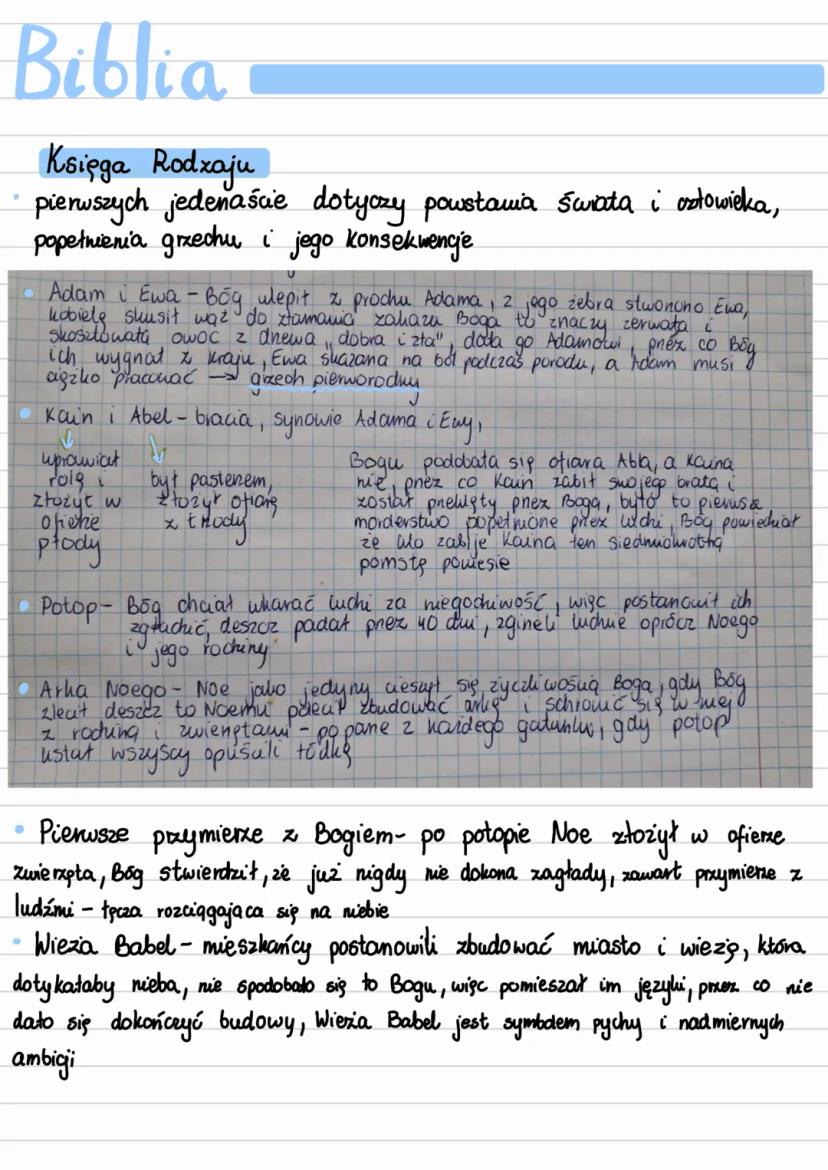 Biblia
Księga Rodzaju
• pierwszych jedenaście dotyczy powstania świata i człowieka,
popełnienia grzechu i jego konsekwencje
• Adam i Ewa – Bóg ulepił z prochu Adama, z jego żebra stworzono Ewę,
kobietę skusił wąż do złamania zakazu Boga to znaczy zerwała i
skosztowała owoc z drzewa „dobra i zła", dała go Adamowi, przez co Bóg
ich wygnał z kraju, Ewa skazana na ból podczas porodu, a Adam musi
ciężko pracować → grzech pierworodny
• Kain i Abel – bracia, synowie Adama i Ewy,
uprawiał
rolę i
złożył w
ofierze
płody
był pasterzem,
złożył ofiarę
z trzody
Bogu podobała się ofiara Abla, a Kaina
nie, przez co Kain zabił swojego brata i
został przeklęty przez Boga, było to pierwsze
morderstwo popełnione przez ludzi, Bóg powiedział
że kto zabije Kaina ten siedmiokrotną
pomstę poniesie
• Potop – Bóg chciał ukarać ludzi za niegodziwość, więc postanowił ich
zgładzić, deszcz padał przez 40 dni, zgineli ludzie oprócz Noego
i jego rodziny
• Arka Noego – Noe jako jedyny cieszył się życzliwością Boga, gdy Bóg
zlecał deszcz to Noemu polecał zbudować arkę i schronić się w niej
z rodziną i zwierzętami – po parze z każdego gatunku, gdy potop
ustał wszyscy opuścili łódkę
• Pierwsze przymierze z Bogiem – po potopie Noe złożył w ofierze
zwierzęta, Bóg stwierdził, że już nigdy nie dokona zagłady, zawarł przymierze z
ludźmi – tęcza rozciągająca się na niebie
• Wieża Babel – mieszkańcy postanowili zbudować miasto i wieżę, która
dotykałaby nieba, nie spodobało się to Bogu, więc pomieszał im języki, przez co nie
dało się dokończyć budowy, Wieża Babel jest symbolem pychy i nadmiernych
ambicji